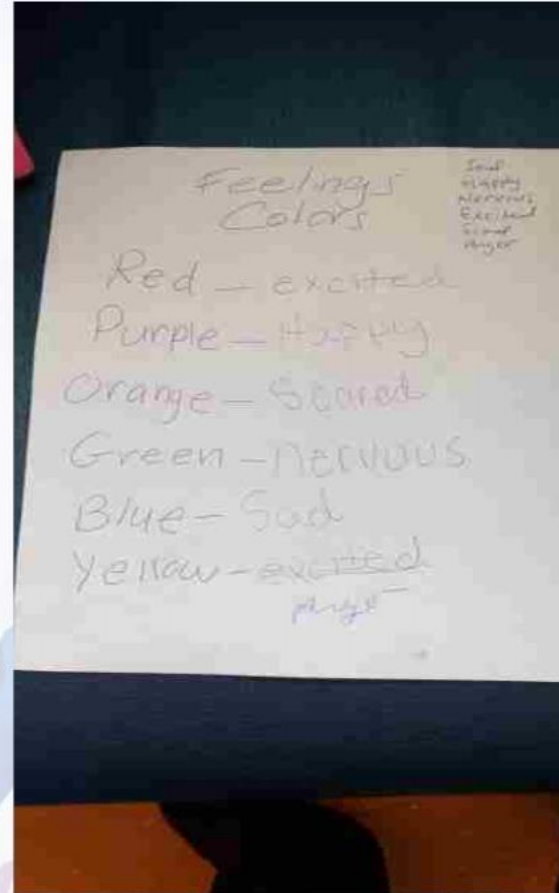 Feelings
Colors
Sad
Happy
Nervous
Excited
Anger
Red – excited
Purple – Happy
Orange – Scared
Green – nervous
Blue – Sad
Yellow – excited